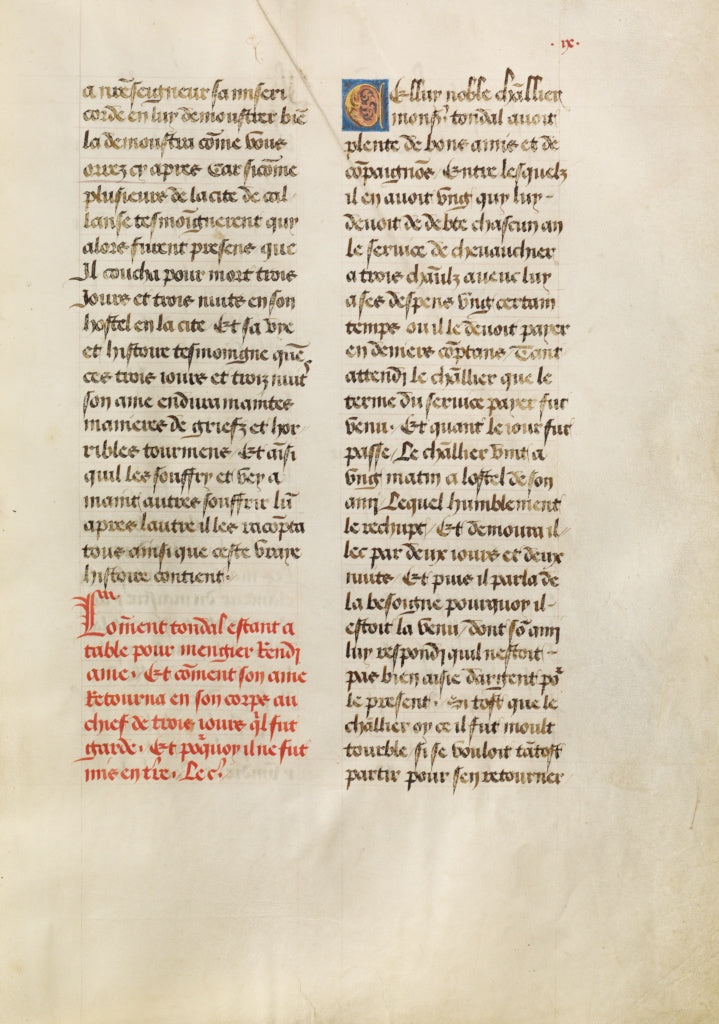 · ix ·
a nr̄e seigneur sa miseri
corde en luy demoustrer biē
la demoustra cōme vous
orrez cy apres Car sicōme
plusieurs de la cite de cal
lanse tesmoīgnerent quy
alors furent presens que
Il coucha pour mort trois
Jours et trois nuits en son
hostel en la cite Et sa vye
et histoire tesmoingne que
ces trois iours et troiz nuit
son ame endura maintes
manieres de griefz et hor
ribles tourmens Et aīsi
quil les souffry et vey a
maint autres souffrir lū
apres lautre il les racōpta
tous ainsi que ceste vraye
histoire contient·
Cōment tondal estant a
table pour mengier Rendi
ame· Et cōment son ame
Retourna en son corps au
chief de trois iours ql fut
garde· Et porquoy il ne fut
mis en tr̄e·
Celluy noble chāllier
monsr̄ tondal auoit
plente de bons amis et de
cōpaignōs Entre lesquelz
il en auoit vng quy luy-
deuoit de debte chascun an
le seruice de cheuauchier
a trois chāulz auecuc luy
a ses despens vng certain
temps ou il le deuoit payer
en deniers cōptans Tant
attendi le chāllier que le
terme du seruice payer fut
venu· Et quant le iour fut
passe Le chāllier vint a
vng matin a lostel de son
ami Lequel humblement
le rechupt Et demoura il
lec par deux iours et deux
nuits Et puis il parla de
la besoigne pourquoy il-
estoit la venu dont sō ami
luy respondi quil nestoit-
pas bien aisie dargent por
le present· En tost que le
chāllier oy ce il fut moult
tourble si se vouloit tātost
partir pour sen retourner